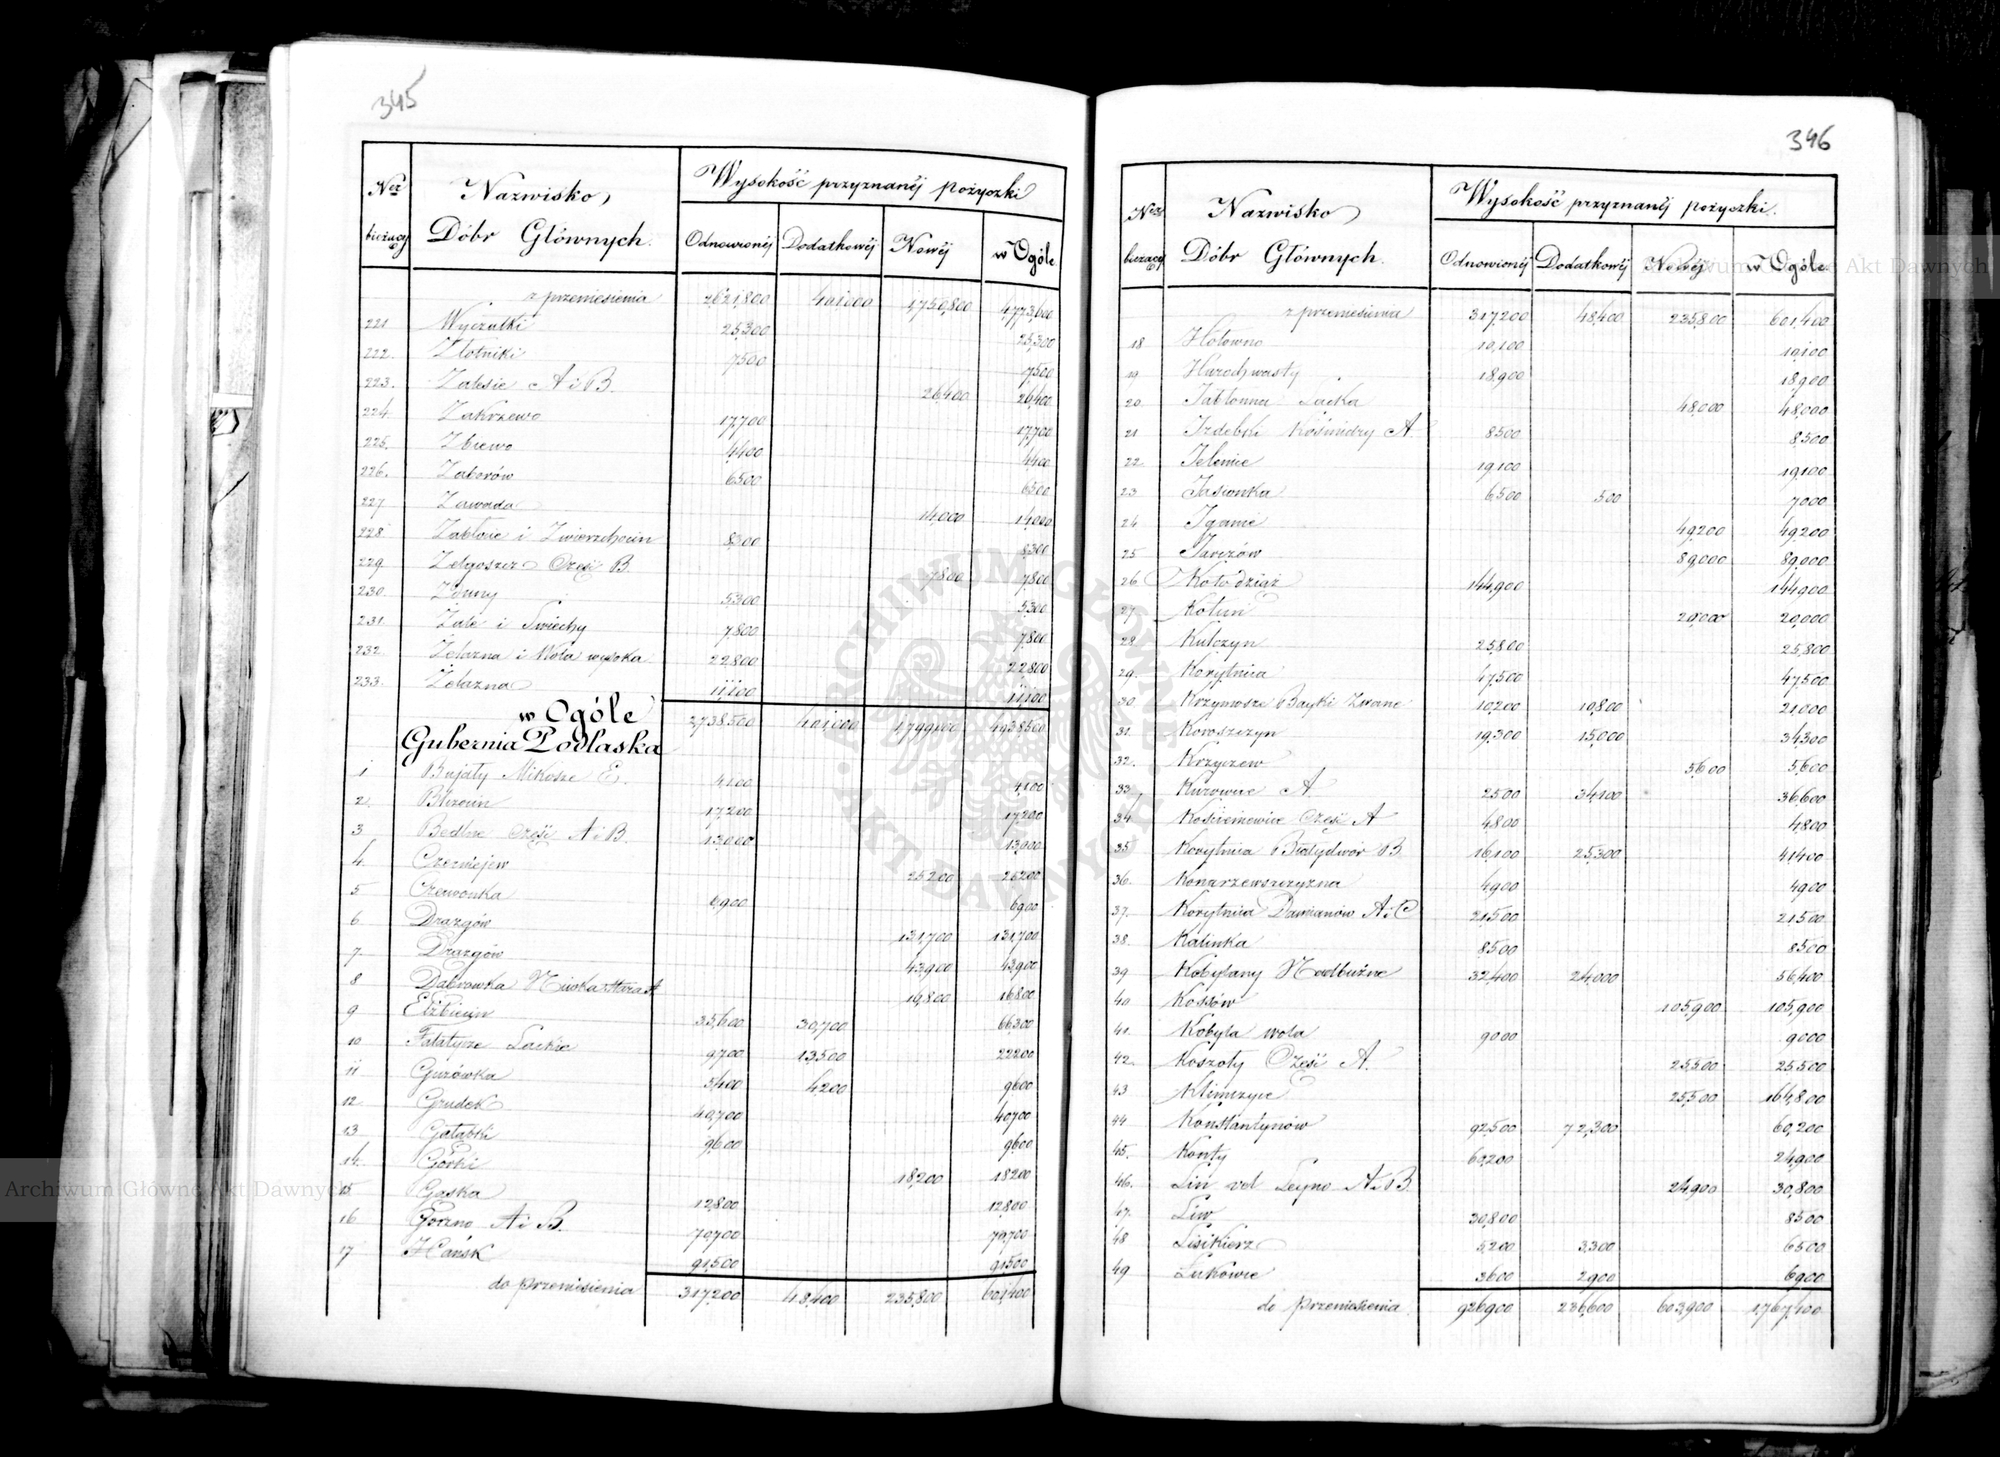 345
Nor bieżący | Nazwisko Dóbr Głównych. | Wysokość przyznanéj pożyczki
Odnowionéj | Dodatkowéj | Nowéj | w Ogóle
z przeniesienia 2,621,800 401,000 1,750,800 4,773,600
221 Wyczałki 25,300 25,300
222. Złotniki 7500 7500
223. Zalesie A i B. 26,400 26,400
224. Zakrzewo 17,700 17,700
225. Zbiewo 4,400 4,400
226. Zaborów 6500 6500
227. Zawada 14,000 14,000
228. Zabłocie i Zwierzchocin 8,300 8,300
229. Zelgoszcz Część B. 7800 7,800
230. Zduny 5,300 5,300
231. Zale i Świechy 7,800 7,800
232. Żelazna i Wola wysoka 22,800 22,800
233. Żelazna 11,100 11,100
w Ogóle 2,738,500 401,000 1,799,000 4,938,500
Gubernia Podlaska
1 Bujały Mikosze E. 4,100 4,100
2. Blizocin 17,200 17,200
3. Bedlne Część A i B. 13,000 13,000
4. Czerniejew 25200 25200
5 Czerwonka 6,900 6,900
6 Drazgów 131,700 131,700
7 Drazgów 43,900 43,900
8 Dąbrówka Niwka Stara A 16,800 16,800
9 Elżbiecin 35,600 30,700 66,300
10 Falatycze Lackie 9,700 13,500 22200
11 Guzówka 5,400 4,200 9,600
12. Grudek 40,700 40,700
13 Gałąbki 9,600 9,600
14. Górki 18,200 18,200
15 Gąska 12,800 12,800
16. Górzno A i B. 70,700 70,700
17 Hańsk 91,500 91,500
do przeniesienia 317,200 48,400 235,800 601,400
346
Nor bieżący | Nazwisko Dóbr Głównych. | Wysokość przyznanéj pożyczki.
Odnowionéj | Dodatkowéj | Nowéj | w Ogóle
z przeniesienia 317,200 48,400 235,800 601,400
18 Hołowno 10,100 10,100
19 Horochwasty 18,900 18,900
20 Jabłonna Lacka 48,000 48,000
21 Izdebki Kośmidry A. 8500 8,500
22 Jelenice 19,100 19,100
23 Jasionka 6,500 500 7000
24 Iganie 49,200 49,200
25 Jarczów 89,000 89,000
26 Kołodziąż 144,900 144,900
27. Kotuń 20,000 20,000
28. Kulczyn 25,800 25,800
29. Korytnica 47,500 47,500
30 Krzymosze Bąyki Zwane 10,200 10,800 21,000
31. Koroszczyn 19,300 15,000 34,300
32. Krzyczew 5,600 5,600
33 Kurowice A 2500 34,100 36,600
34. Kościeniewice Część A 4,800 4,800
35 Korytnica Białydwór B. 16,100 25,300 41,400
36. Konarzewszczyzna 4,900 4,900
37. Korytnica Damianów A i C 21,500 21,500
38. Kalinka 8,500 8,500
39 Kobylany Nadbużne 32,400 24,000 56,400
40 Kossów 105,900 105,900
41. Kobyla wola 9000 9000
42. Koszoły Część A. 25,500 25,500
43 Klimczyce 25,500 164,800
44 Konstantynów 92,500 72,300 60,200
45. Konty 60,200 24,900
46. Liń vel Leyno A i B. 24,900 30,800
47. Liw 30,800 8500
48 Lisikierz 5,200 3,300 6500
49 Lukowie 3600 2,900 6,900
do przeniesienia 926,900 236,600 603,900 1,767,100
ARCHIWUM GŁÓWNE AKT DAWNYCH
Archiwum Główne Akt Dawnych
Archiwum Główne Akt Dawnych